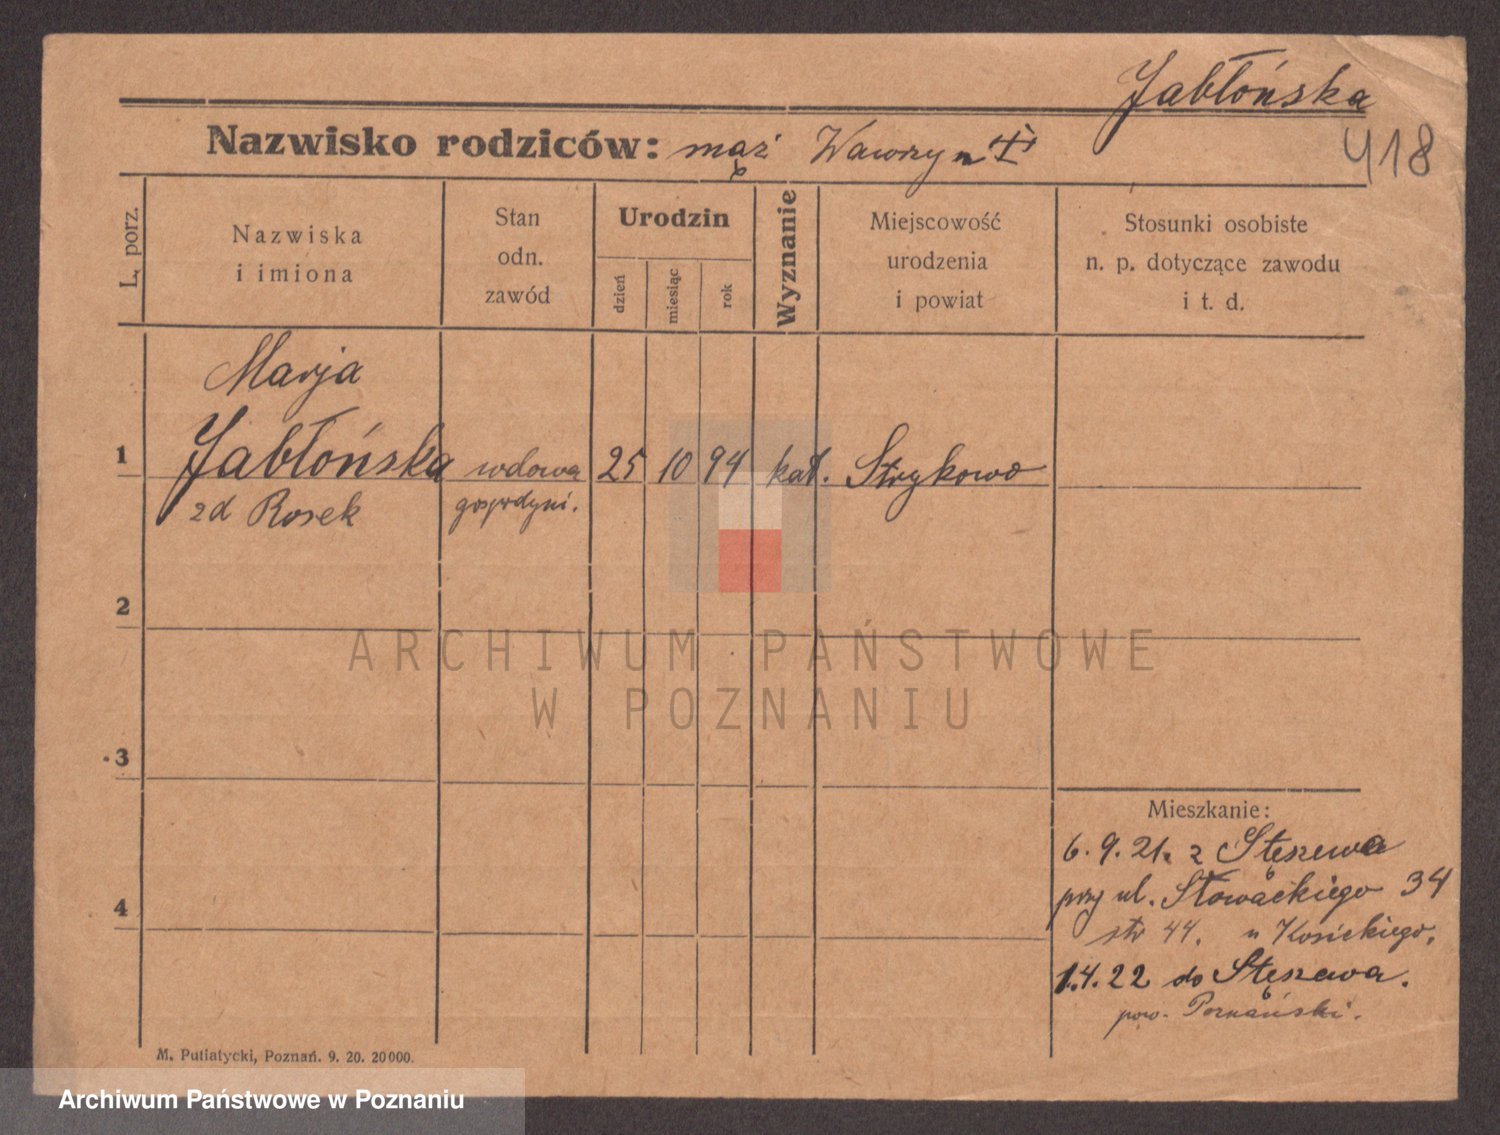 Jabłońska
Nazwisko rodziców: mąż Wawrzyn
418
L. porz.
Nazwiska
i imiona
Stan
odn.
zawód
Urodzin
dzień
miesiąc
rok
Wyznanie
Miejscowość
urodzenia
i powiat
Stosunki osobiste
n. p. dotyczące zawodu
i t. d.
Marja
1 Jabłońska wdowa 25 10 94 kat. Strykowo
zd Rosek gospodyni.
2
ARCHIWUM PAŃSTWOWE
W POZNANIU
3
Mieszkanie:
6.9.21. z Stęszewa
przy ul. Słowackiego 34
4
str 44. u Kosickiego.
1.4.22 do Stęszewa.
pow. Poznański.
M. Putiatycki, Poznań. 9. 20. 20000.
Archiwum Państwowe w Poznaniu